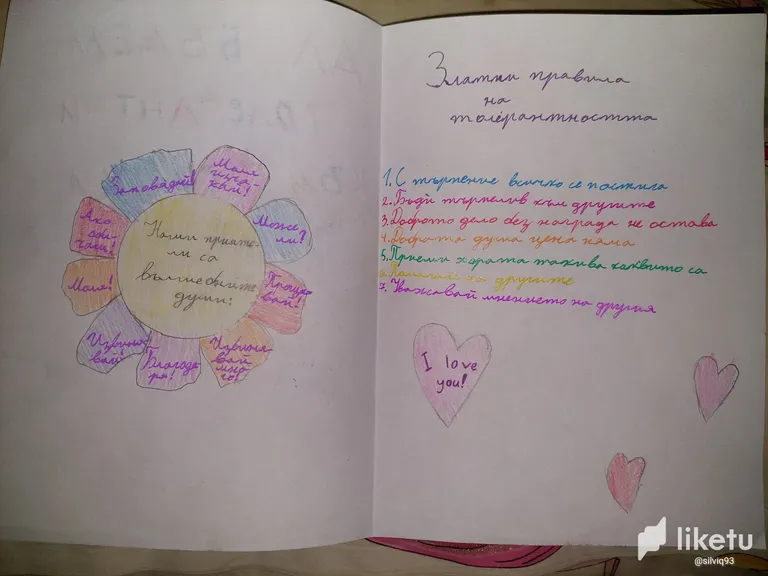 Наши прияте-
ли са
вълшебните
думи:
Моля
изча-
кай!
Може
ли?
Прощa-
вай!
Извиня-
вай мно-
го!
Благода-
ря!
Извиня-
вай!
Моля!
Ако
оби-
чаш!
Заповядай!
Златни правила
на
толерантността
1. С търпение всичко се постига
2. Бъди търпелив към другите
3. Доброто дело без награда не остава
4. Добрата душа цена няма
5. Приеми хората такива каквито са
6. Помагай на другите
7. Уважавай мнението на другия
I love
you!
liketu
@silviq93